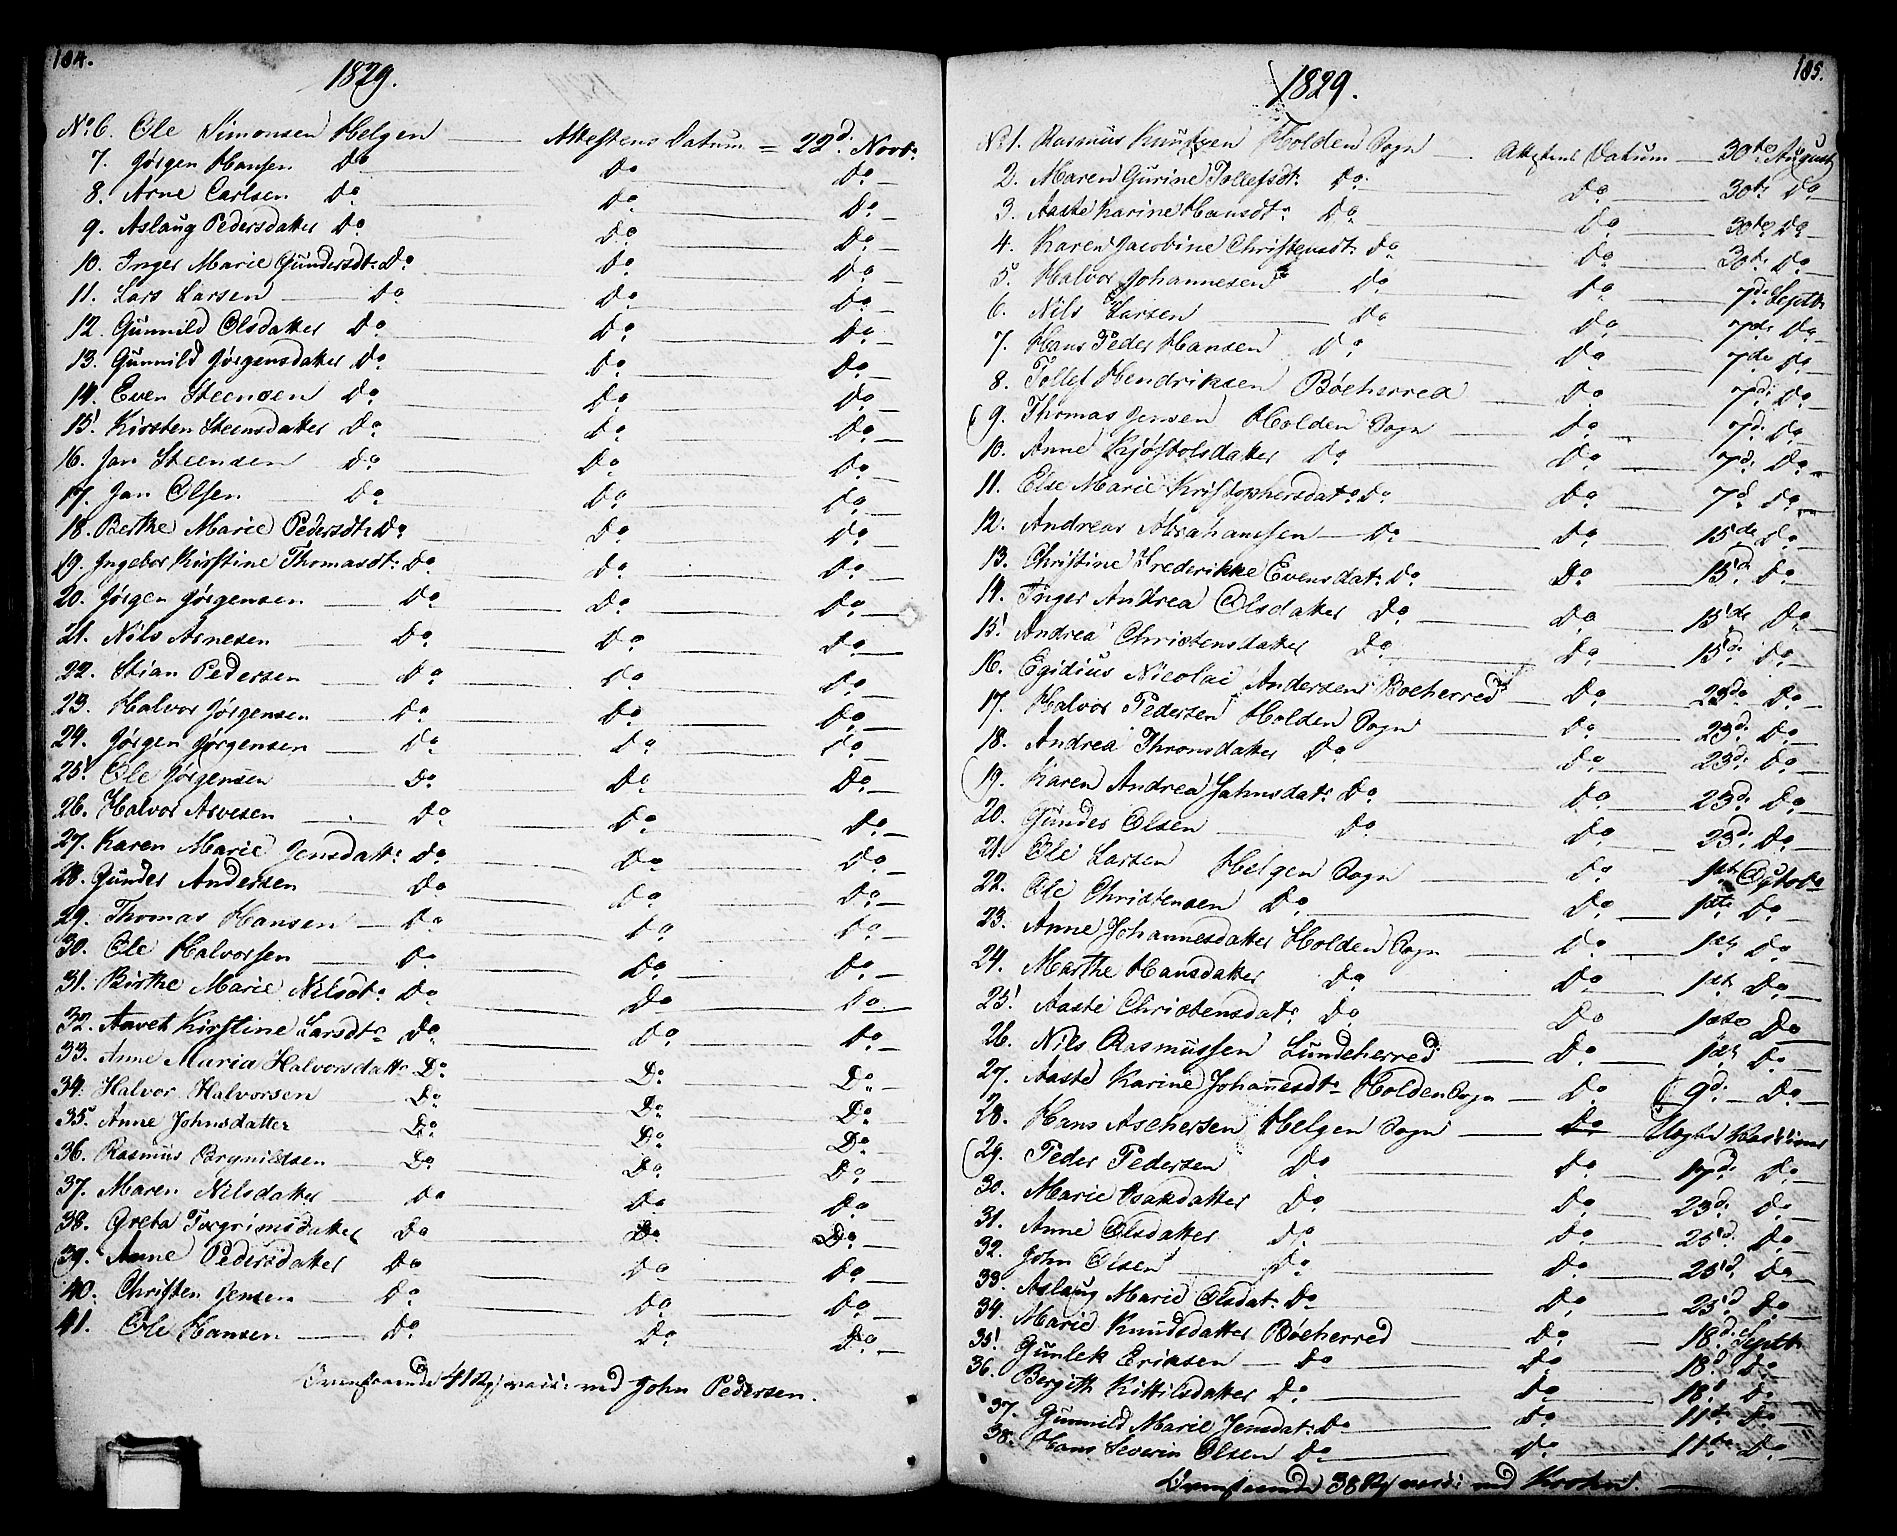 104.
1829.
No 6. Ole Simonsen Helgen Attestens Datum = 22d. Novbr
7. Jørgen Hansen Do Do Do
8. Arne Carlsen Do Do Do
9. Aslaug Pedersdatter Do Do Do
10. Inger Marie Gundersdtr Do Do Do
11. Lars Larsen Do Do Do
12. Gunnild Olsdatter Do Do Do
13. Gunnild Jørgensdatter Do Do Do
14. Even Steensen Do Do Do
15. Kirsten Steensdatter Do Do Do
16. Jan Steensen Do Do Do
17. Jan Olsen Do Do Do
18. Berthe Marie Pedersdtr Do Do Do
19. Ingebor Kirstine Thomasdtr Do Do Do
20. Jørgen Jørgensen Do Do Do
21. Nils Arnesen Do Do Do
22. Stian Pedersen Do Do Do
23. Halvor Jørgensen Do Do Do
24. Jørgen Jørgensen Do Do Do
25. Ole Jørgensen Do Do Do
26. Halvor Arvesen Do Do Do
27. Karen Marie Jensdattr Do Do Do
28. Gunder Andersen Do Do Do
29. Thomas Hansen Do Do Do
30. Ole Halvorsen Do Do Do
31. Birthe Marie Nilsdtr Do Do Do
32. Anret Kirstine Larsdtr Do Do Do
33. Anne Maria Halvorsdattr Do Do Do
34. Halvor Halvorsen Do Do Do
35. Anne Johnsdatter Do Do Do
36. Rasmus Brynildsen Do Do Do
37. Maren Nilsdatter Do Do Do
38. Greta Torgrimsdatter Do Do Do
39. Anne Pedersdatter Do Do Do
40. Christen Jensen Do Do Do
41. Ole Hansen Do Do Do
Ovenstaaende 41 vacc: ved John Pedersen.
105.
1829.
No 1. Rasmus Knutsen Holden Sogn Attestens Datum 30te August
2. Maren Gurine Tollefsdtr Do Do 30te Do
3. Aaste Karine Hansdtr Do Do 30te Do
4. Karen Jacobine Christensdtr Do Do 30te Do
5. Halvor Johannesen Do Do 7de Septbr
6. Nils Larsen Do Do 7de Do
7. Hans Peder Hansen Do Do 7de Do
8. Tollef Hendriksen Bøeherred Do 7de Do
9. Thomas Jensen Holden Sogn Do 7d. Do
10. Anne Kjøstolsdatter Do Do 7d. Do
11. Else Marie Kristophersdatr Do Do 7d Do
12. Andreas Abrahamsen Do Do 15de Do
13. Christine Frederikke Evensdatr Do Do 15d. Do
14. Inger Andrea Olsdatter Do Do 15de Do
15. Andrea Christensdatter Do Do 15d. Do
16. Egidius Nicolai Andersen Boeherred Do 23de Do
17. Halvor Pedersen Holden Sogn Do 23d. Do
18. Andrea Thronsdatter Do Do 23d. Do
19. Karen Andrea Jahnsdatr Do Do 23d. Do
20. Gunder Olsen Do Do 23d. Do
21. Ole Larsen Helgen Sogn Do 1ste Octobr
22. Ole Christensen Do Do 1ste Do
23. Anne Johannesdatter Holden Sogn Do 1ste Do
24. Marthe Hansdatter Do Do 1ste Do
25. Aaste Christensdatr Do Do 1ste Do
26. Nils Rasmussen Lundeherred Do 1ste Do
27. Aaste Karine Johannesdtr Holden Sogn Do 9d. Do
28. Hans Aschersen Helgen Sogn Do
29. Peder Pedersen Do Do 17d. Do
30. Marie Isaksdatter Do Do 23d. Do
31. Anne Olsdatter Do Do 25d. Do
32. John Olsen Do Do 25d. Do
33. Aslaug Marie Olsdatr Do Do 25d. Do
34. Marie Knudsdatter Bøeherred Do 18de Septbr
35. Gunlek Eriksen Do Do 18d. Do
36. Bergith Kittilsdatter Do Do 18d Do
37. Gunnild Marie Jensdatr Do Do 11te Do
38. Hans Severin Olsen Do Do 11te Do
Ovenstaaende 38 vacc: ved